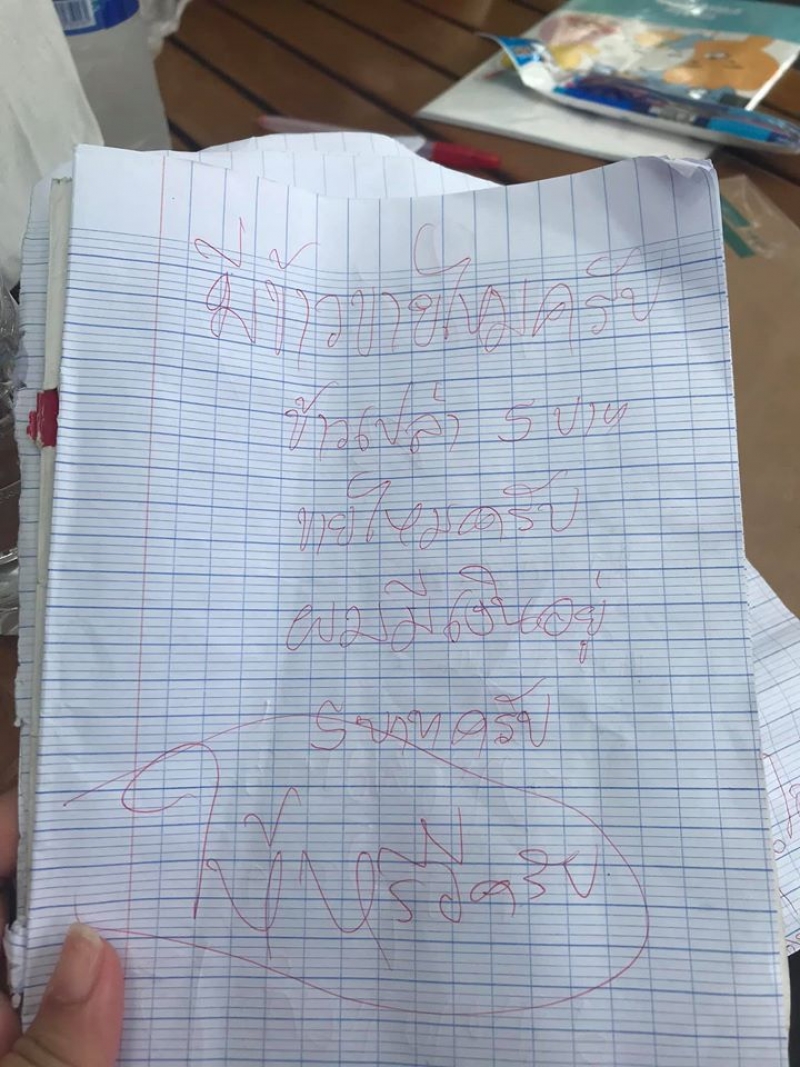 มีข้าวขายไหมครับ
ข้าวเปล่า 5 บาท
ขายไหมครับ
ผมมีเงินอยู่
5 บาทครับ
ครับ